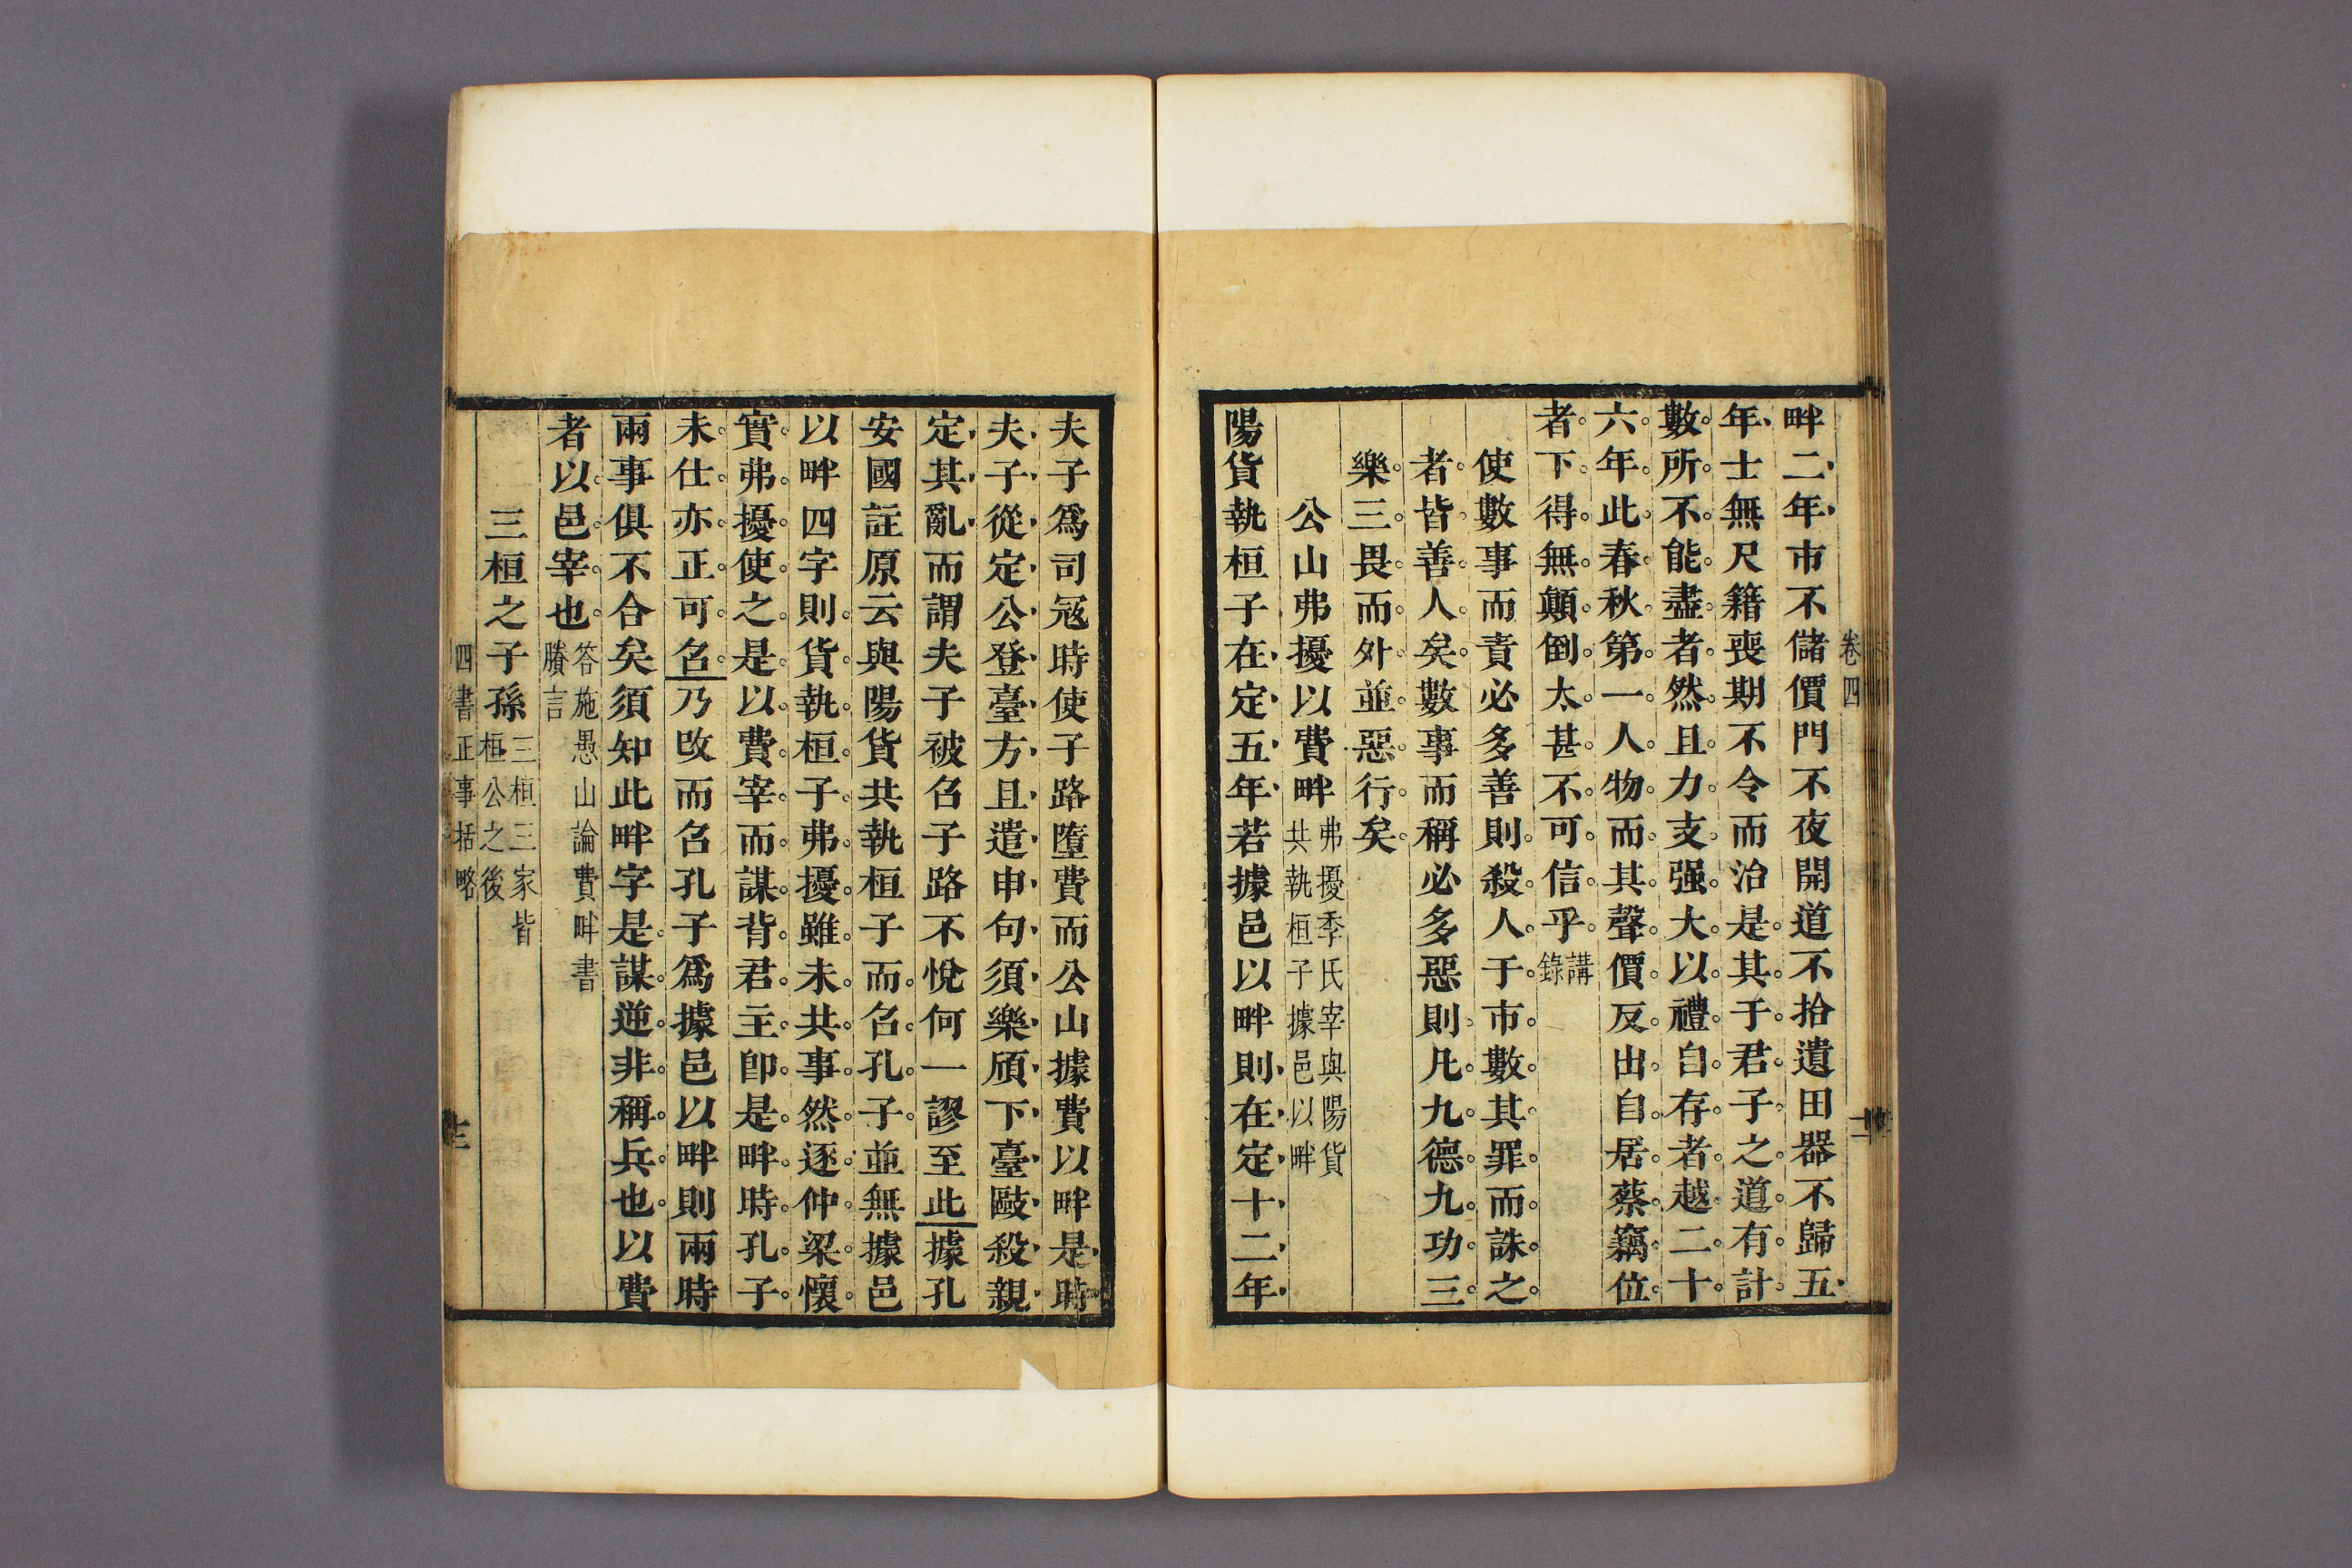 卷四
畔二年市不儲價門不夜開道不拾遺田器不歸五
年士無尺籍喪期不令而治是其子君子之道有計
數所不能盡者然且力支强大以禮自存者越二十
六年此春秋第一人物而其聲價反出自居蔡竊位
者下得無顛倒太甚不可信乎講錄
使數事而責必多善則殺人于市數其罪而誅之
者皆善人矣數事而稱必多惡則凡九德九功三
樂三畏而外並惡行矣
公山弗擾以費畔弗擾季氏宰與陽貨共執桓子據邑以畔
陽貨執桓子在定五年若據邑以畔則在定十二年
夫子爲司冦時使子路墮費而公山據費以畔是時
夫子從定公登臺方且遣申句須樂頎下臺敺殺親
定其亂而謂夫子被召子路不悅何一謬至此據孔
安國註原云與陽貨共執桓子而召孔子並無據邑
以畔四字則貨執桓子弗擾雖未共事然逐仲梁懷
實弗擾使之是以費宰而謀背君主卽是畔時孔子
未仕亦正可召乃改而召孔子爲據邑以畔則兩時
兩事俱不合矣須知此畔字是謀逆非稱兵也以費
者以邑宰也答施愚山論費畔書賸言
三桓之子孫三桓三家皆桓公之後
四書正事括略